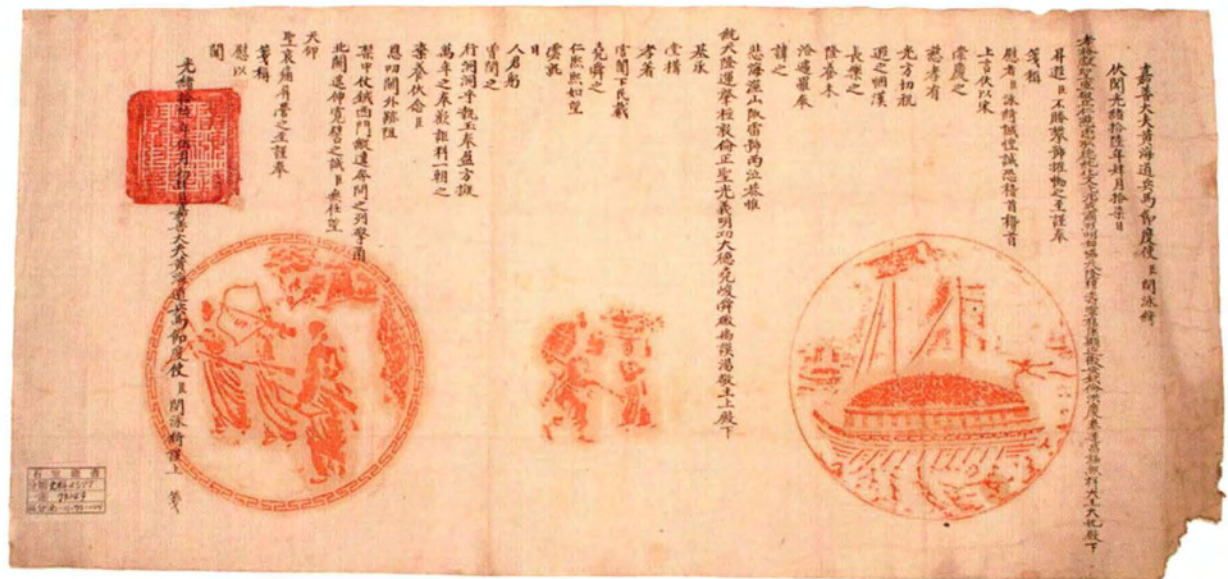 嘉善大夫黃海道兵馬節度使臣閔泳綺
伏聞光緒拾陸年肆月拾柒日
大王大妃殿下
昇遐臣不勝攀號擗慟之至謹奉
箋稱
慰者臣泳綺誠惶誠恐稽首稽首
上言伏以宋
崇慶之
慈孝有
光方切祝
遐之漢
長樂之
隆養未
洽遽罹奉
諱之
悲海深山陬雷號雨泣恭惟
統天隆運肇極敦倫正聖光義明功大德堯峻舜徽禹謨湯敬主上殿下
基承
堂構
孝著
宮闈下民戴
堯舜之
仁熙熙如望
雲就
日
人君躬
曾閔之
行洞洞乎執玉奉盈方擬
萬年之奉歡詎料一朝之
棄養伏念臣
恩叨閫外跡阻
禁中仗鉞西門縱違奔問之列擎函
北闕遙伸寬譬之誠臣無任望
天仰
聖哀痛屏營之至謹奉
箋稱
慰以
聞
光緒拾陸年伍月初日嘉善大夫黃海道兵馬節度使臣閔泳綺謹上 箋